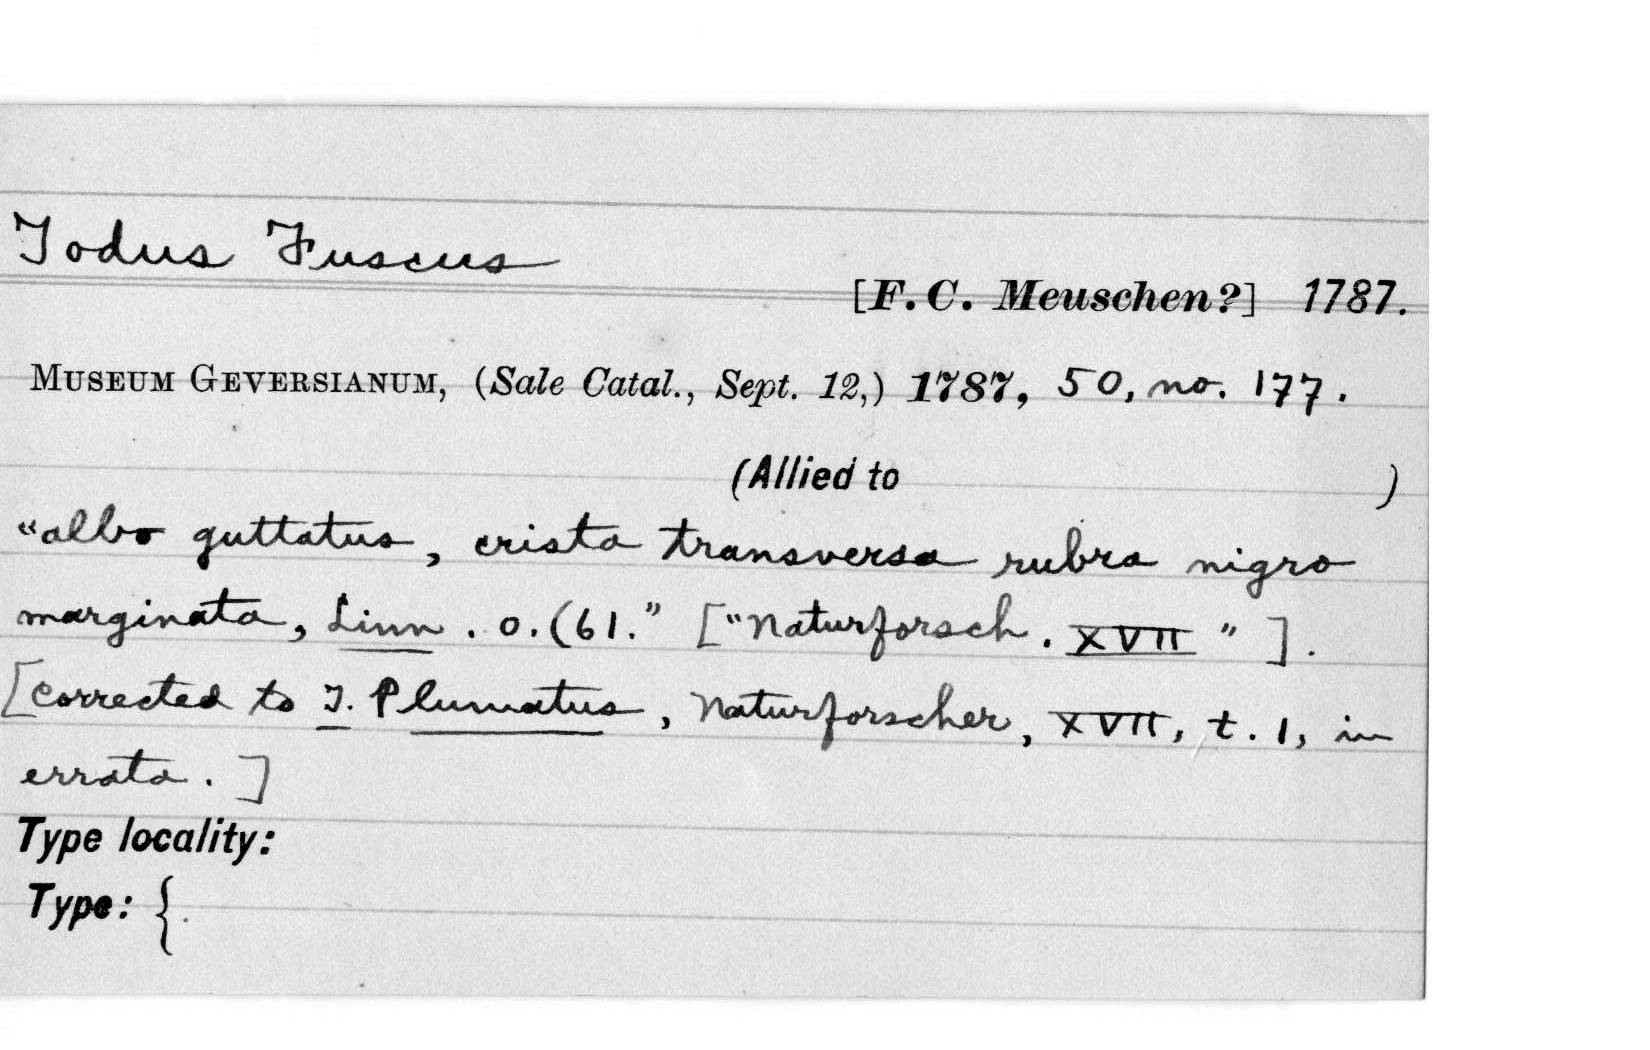 Todus Fuscus
[F. C. Meuschen?] 1787.
MUSEUM GEVERSIANUM, (Sale Catal., Sept. 12,) 1787, 50, no. 177.
(Allied to )
"albo guttatus, crista transversa rubra nigro
marginata, Linn. o. (61." ["Naturforsch. XVII"].
[corrected to T. Plumatus, Naturforscher, XVII, t. 1, in
errata.]
Type locality:
Type: {